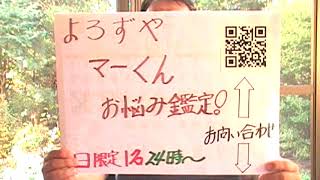 よろずや
マーくん
お悩み鑑定!
お問い合わせ
日限定1名24時〜